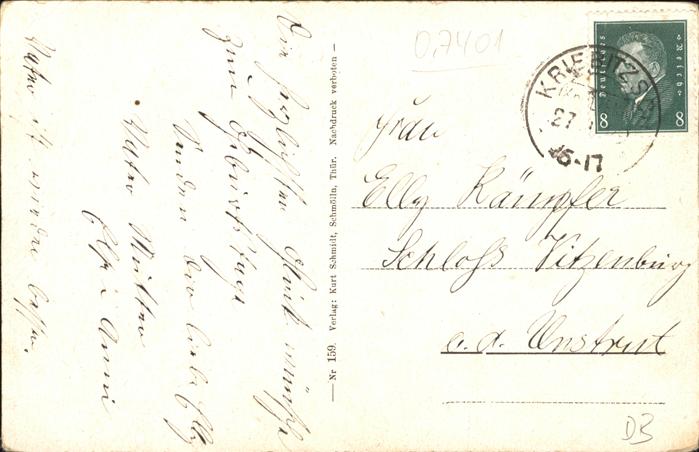 Die herzlichsten Glückwünsche
zum Geburtstage
senden Dir liebe Elly
Vater Mutter
Vater ist wieder besser.
Nr 159. Verlag: Kurt Schmidt, Schmölln, Thür. Nachdruck verboten
0,7401
Deutsches Reich
8 8
KRIEBITZSCH
27
16-17
Frau
Elly Kämpfer
Schloß Vitzenburg
a. d. Unstrut
DB